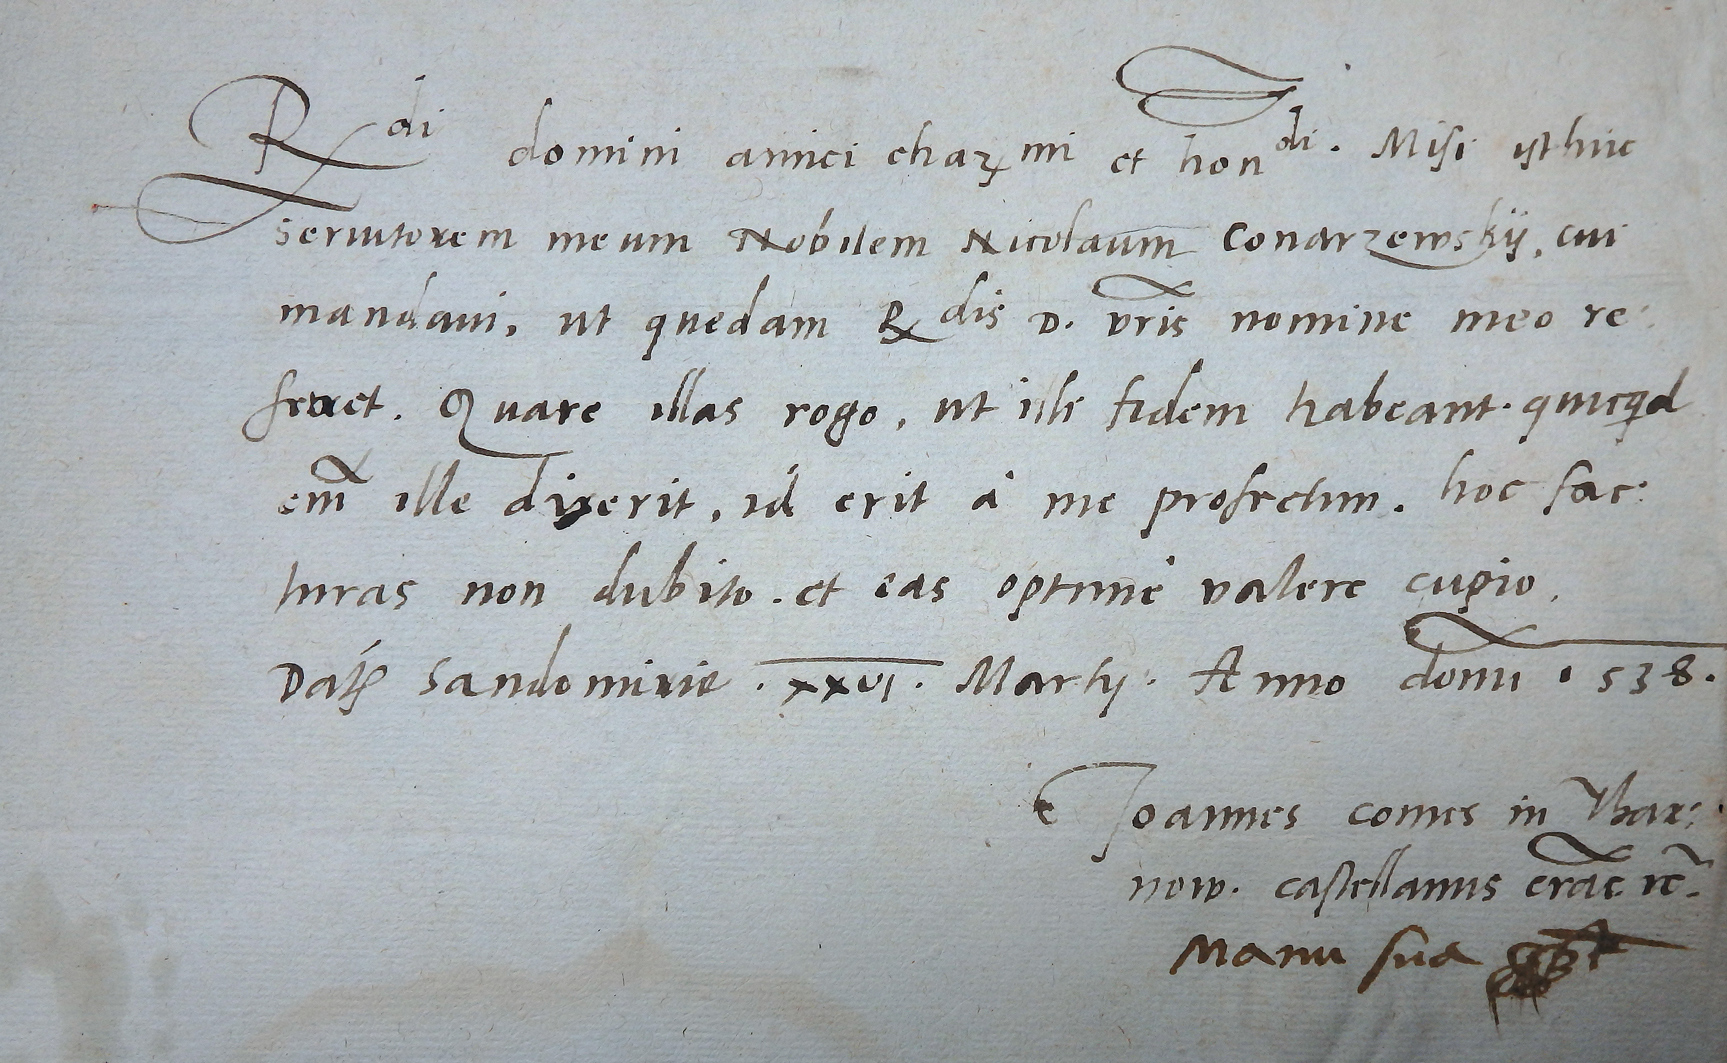 Rdi domini amici charmi et hondi. Misi isthuc
servitorem meum Nobilem Nicolaum Conarzewskij, cui
mandavi, ut quedam Rdis D. vris nomine meo re:
ferret. Quare illas rogo, ut illi fidem habeant. quicqd
em ille dixerit, id erit à me profectum. hoc fac:
turas non dubito. et eas optime valere cupio.
Dat Sandomirie .xxvi. Martij. Anno domi 1538.
Joannes comes in Thar:
now. castellanus crac. rc.
Manu sua sst